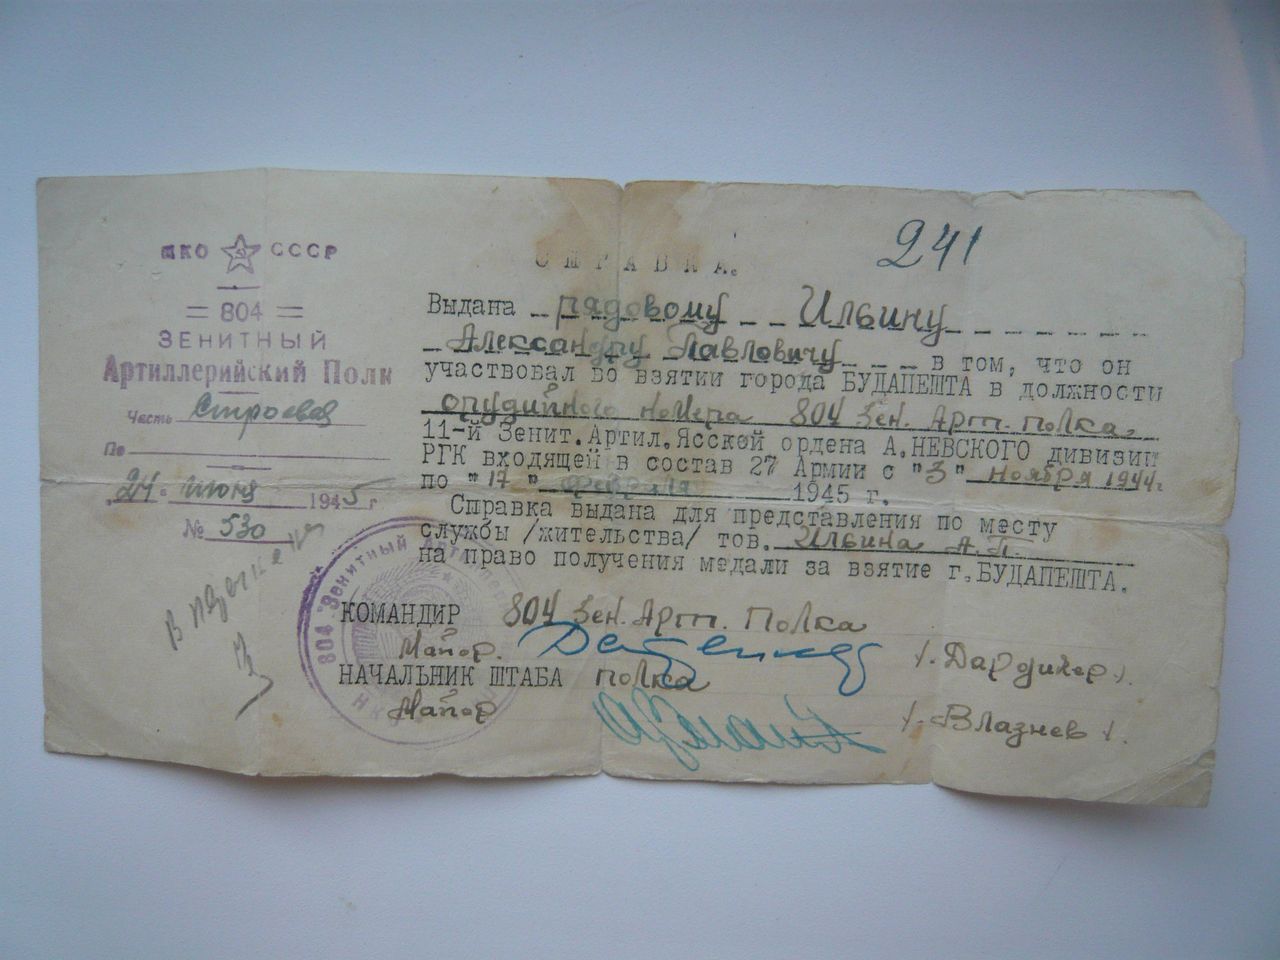 НКО СССР
= 804 =
ЗЕНИТНЫЙ
Артиллерийский Полк
Часть Строевая
По
„24" июня 1945 г
№ 530
241
СПРАВКА.
Выдана рядовому Ильину
Александру Павловичу в том, что он
участвовал во взятии города БУДАПЕШТА в должности
орудийного номера 804 Зен. Арт. полка.
11-й Зенит.Артил.Ясской ордена А.НЕВСКОГО дивизии
РГК входящей в состав 27 Армии с "3" ноября 1944г.
по "17" февраля 1945 г.
Справка выдана для представления по месту
службы /жительства/ тов. Ильина А.П.
на право получения медали за взятие г.БУДАПЕШТА.
КОМАНДИР 804 Зен. Арт. Полка
Майор. /. Дардикер /.
НАЧАЛЬНИК ШТАБА полка
Майор /. Влазнев /.
804 Зенитный Артиллер
НК